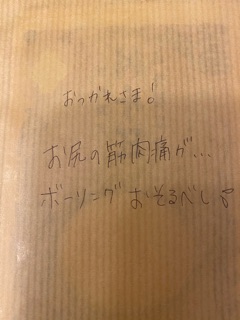 おつかれさま!
お尻の筋肉痛が...
ボーリングおそるべし!